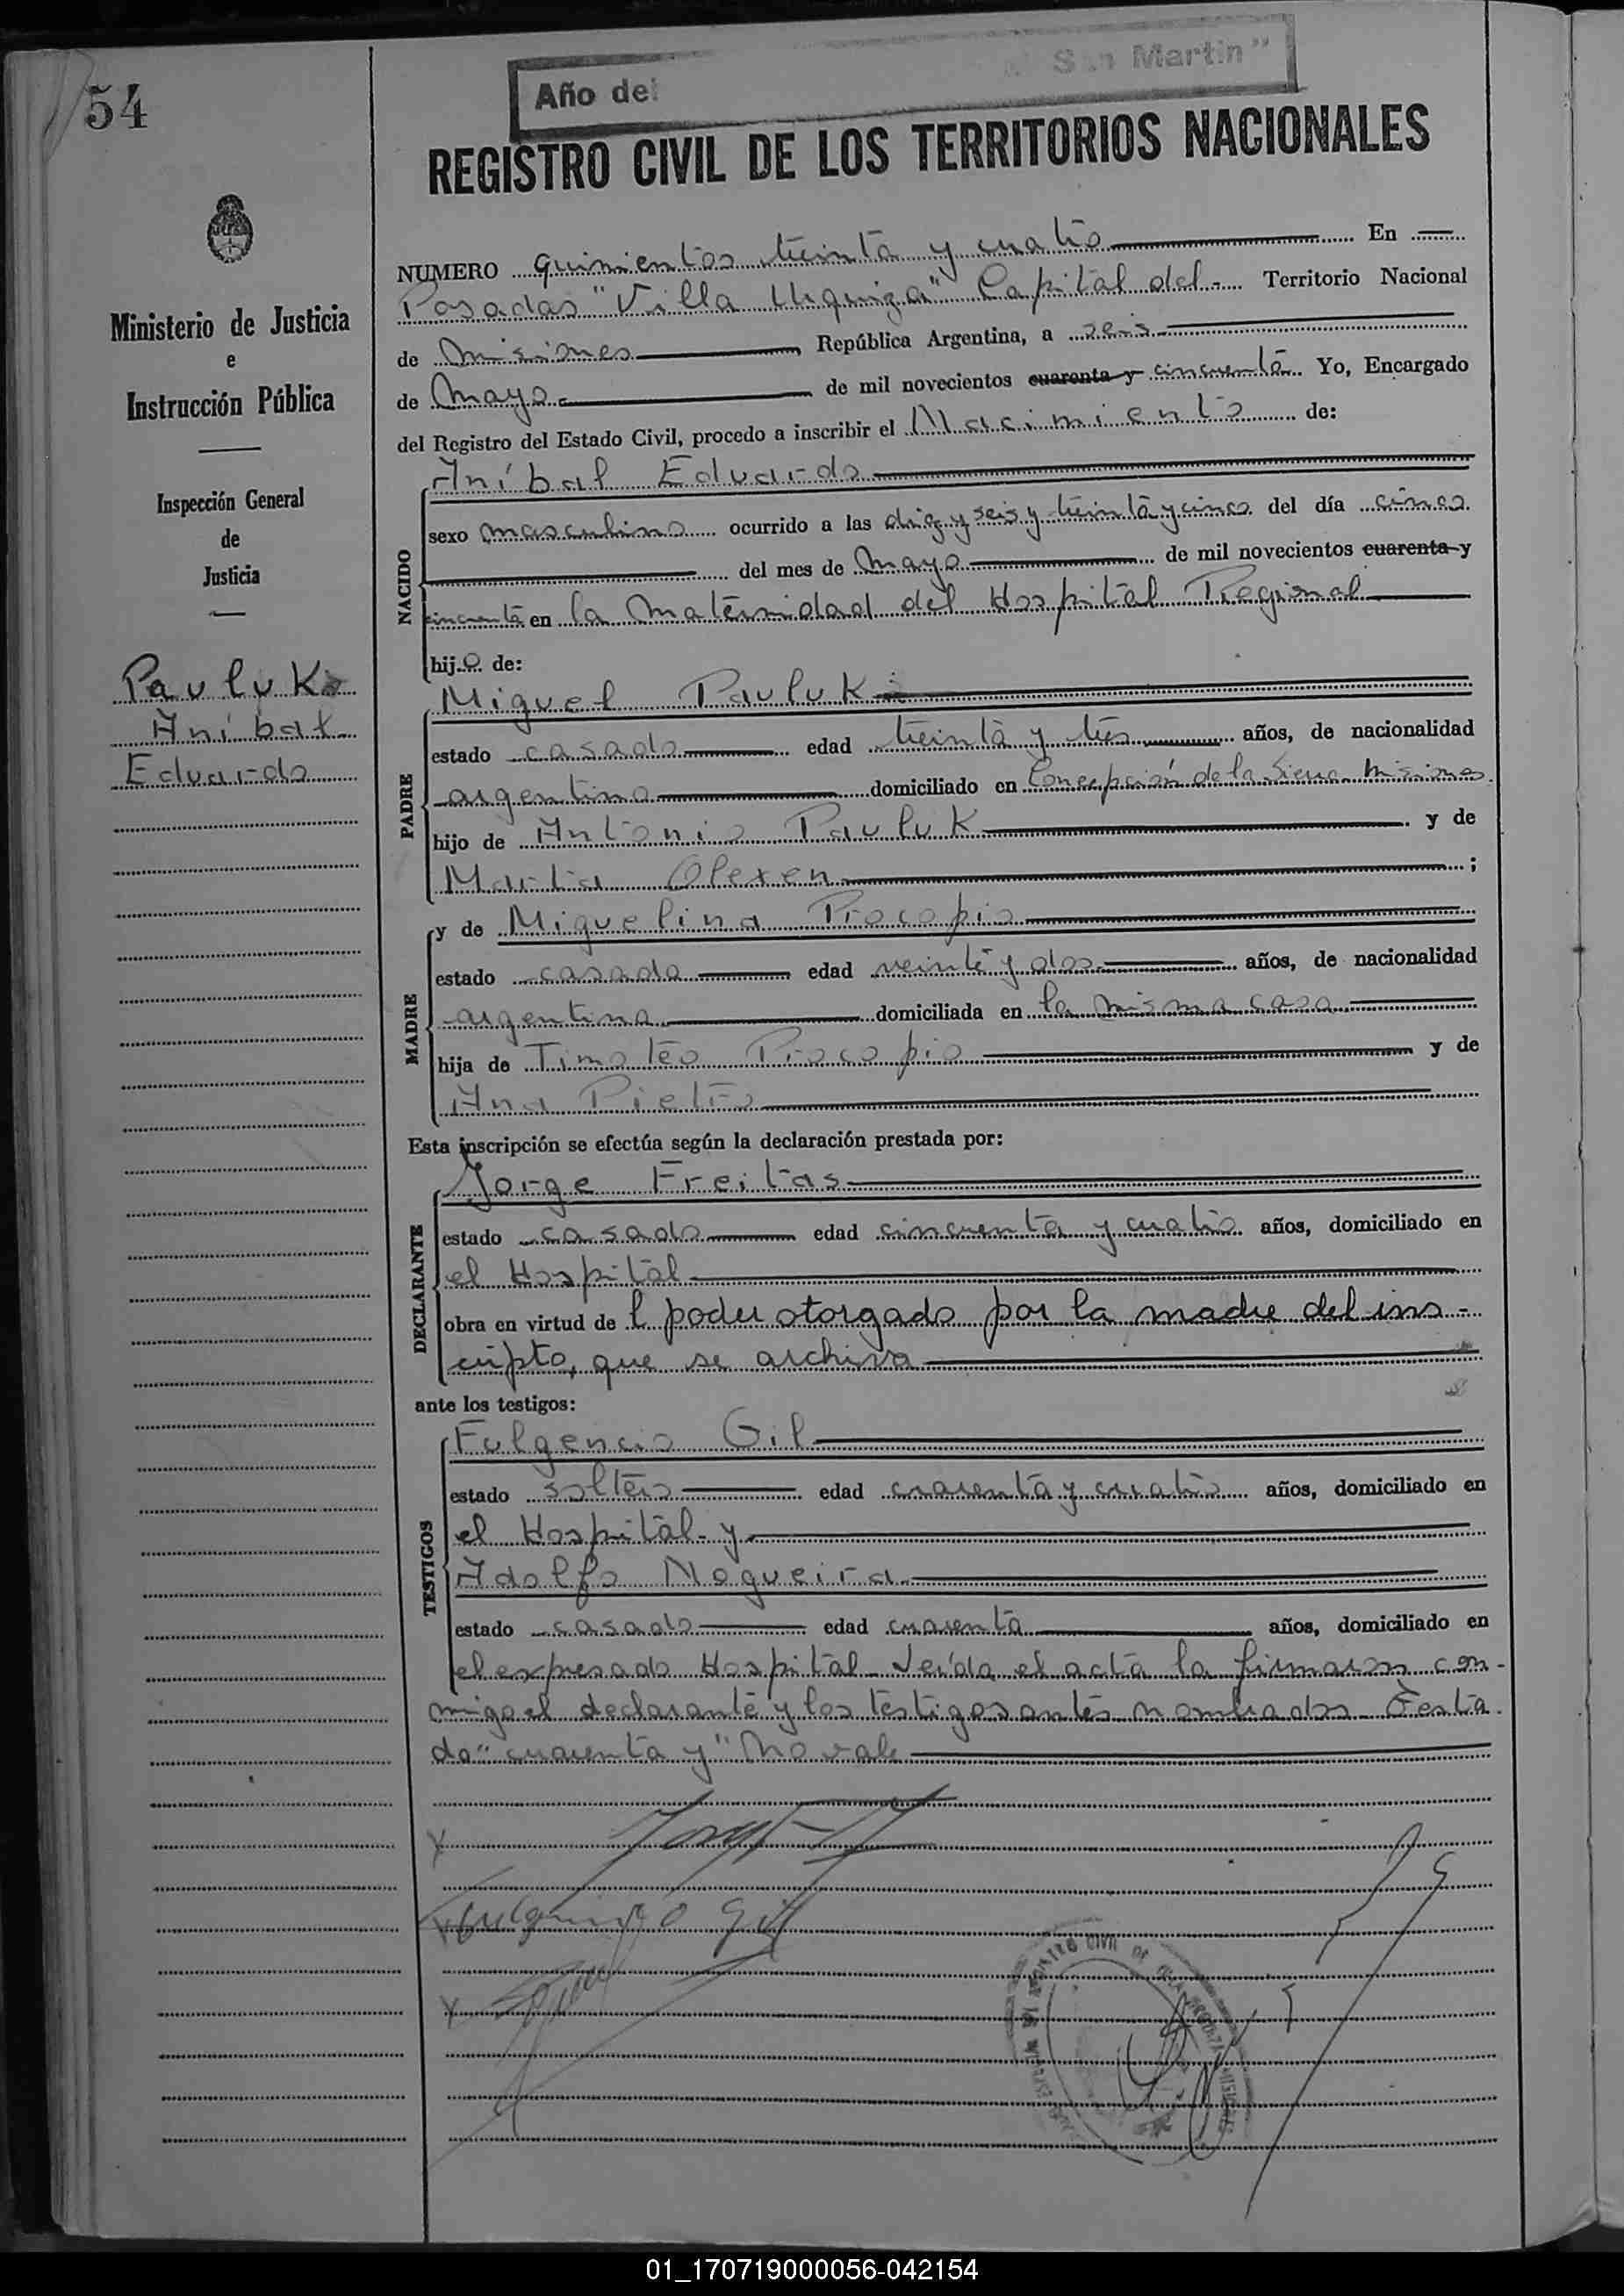 54
Año del San Martín"
REGISTRO CIVIL DE LOS TERRITORIOS NACIONALES
Ministerio de Justicia
e
Instrucción Pública
Inspección General
de
Justicia
Pauluk
Aníbal
Eduardo
NUMERO quinientos treinta y cuatro En
Posadas "Villa Urquiza" Capital del Territorio Nacional
de Misiones República Argentina, a seis
de Mayo de mil novecientos cuarenta y cincuenta Yo, Encargado
del Registro del Estado Civil, procedo a inscribir el Nacimiento de:
NACIDO
Aníbal Eduardo
sexo masculino ocurrido a las diez y seis y treinta y cinco del día cinco
del mes de Mayo de mil novecientos cuarenta y
cincuenta en la Maternidad del Hospital Regional
hijo de:
PADRE
Miguel Pauluk
estado casado edad treinta y tres años, de nacionalidad
argentino domiciliado en Concepción de la Sierra Misiones
hijo de Antonio Pauluk y de
Marta Olexen ;
MADRE
y de Miguelina Procopio
estado casada edad veinte y dos años, de nacionalidad
argentina domiciliada en la misma casa
hija de Timoteo Procopio y de
Ana Pietro
Esta inscripción se efectúa según la declaración prestada por:
DECLARANTE
Jorge Freitas
estado casado edad cincuenta y cuatro años, domiciliado en
el Hospital
obra en virtud de l poder otorgado por la madre del ins-
cripto, que se archiva
ante los testigos:
TESTIGOS
Fulgencio Gil
estado soltero edad cuarenta y cuatro años, domiciliado en
el Hospital y
Adolfo Nogueira
estado casado edad cuarenta años, domiciliado en
el expresado Hospital Leída el acta la firmaron con-
migo el declarante y los testigos antes nombrados Testa
do "cuarenta y" No vale
Fulgencio Gil
01_170719000056-042154